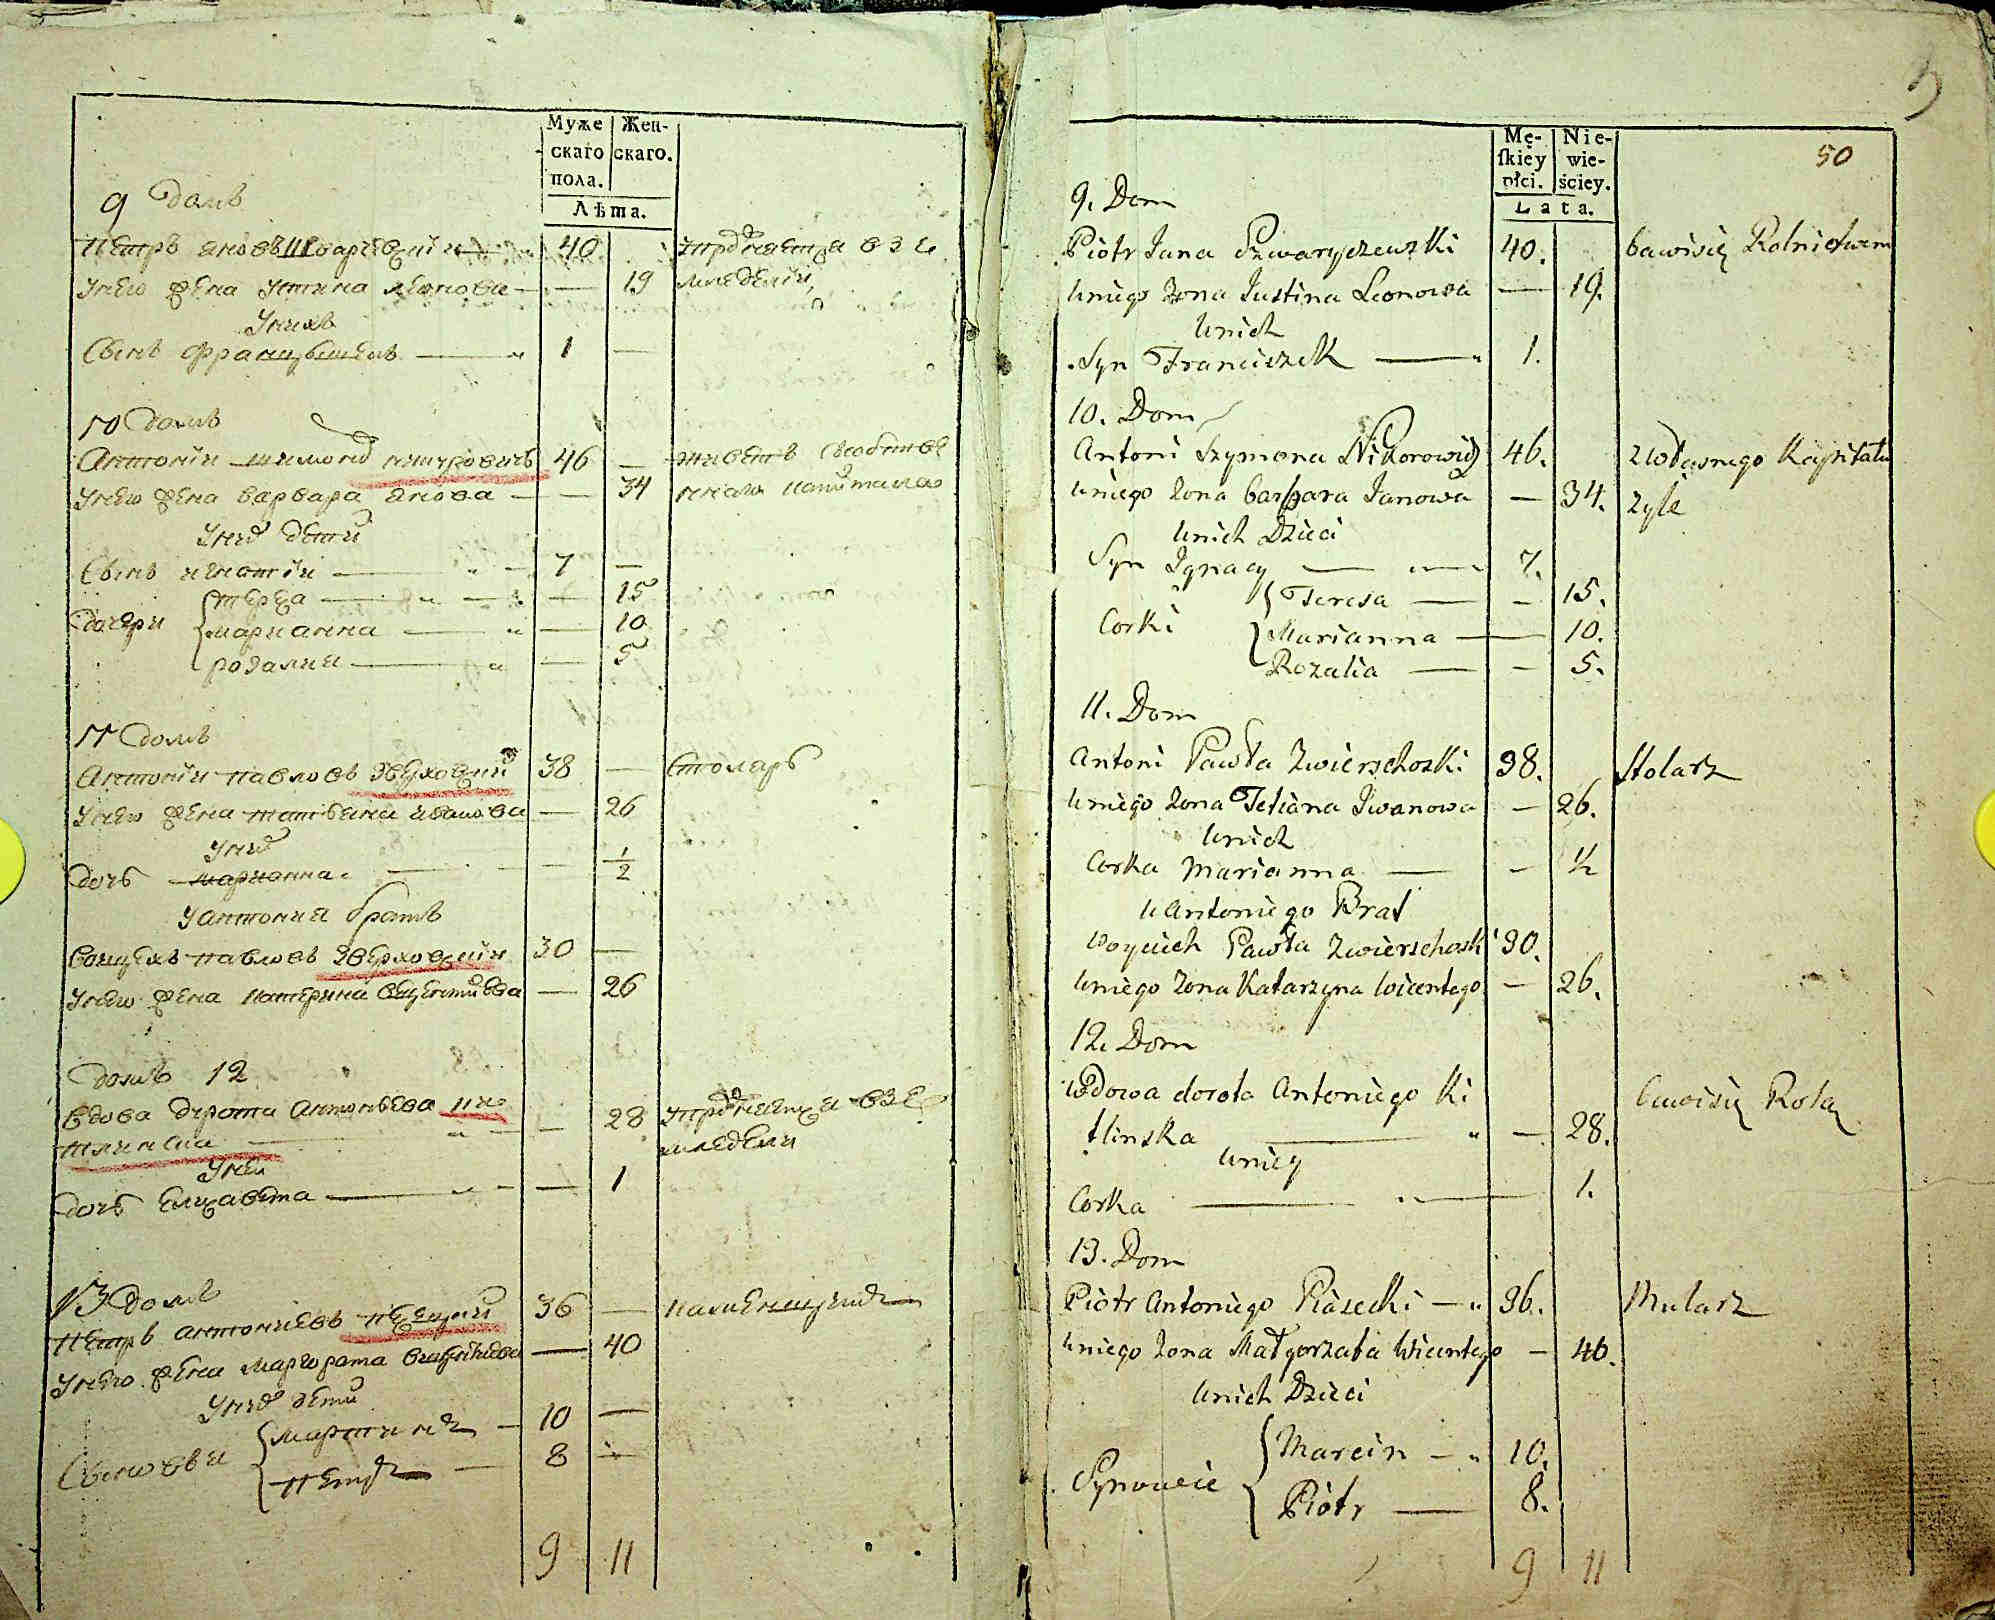 Муже
скаго
пола.
Жен-
скаго.
Лѣта.
9 домъ
Петръ яновъ Шварчевскій 40 упражняется в зе
у него жена устина леонова — 19 мледеліи
у нихъ
Сынъ францышекъ — 1 —
10 домъ
Антоніи шимонов никуровичъ 46 — живетъ собстве
у него жена варвара янова — — 34 капитала
у них дети
Сынъ игнатіи — 7 —
дочери тереза — — 15
марианна — — 10
розалия — — 5
11 домъ
Антоніи павловъ Зверховскии 38 — Столяръ
у него жена татьяна иванова — 26
у них
дочь марианна — — 1/2
у антония братъ
воицехъ павловъ Зверховскии 30 —
у него жена катерина — 26
домъ 12
вдова дорота антоньева ки- — 28 упражняется в зе
тлинска — мледели
у неи
дочь Елизавета — — 1
13 домъ
петръ антониевъ песецкии 36 — каменщикъ
у него жена маргората — 40
у них дети
Сыновья мартинъ — 10 —
петръ — 8 —
9 11
50
Mę-
ſkiey
płci.
Nie-
wie-
ściey.
Lata.
9. Dom
Piotr Jana Szwaryczewski 40. bawisię Rolnictwem
uniego żona Justina Leonowa — 19.
unich
Syn Franciszek — 1.
10. Dom
Antoni Szymona Nikorowicz 46. zwłasnego Kapitału
uniego żona barbara Janowa — 34. żyie
unich Dzieci
Syn Ignacy — 7.
Corki Teresa — — 15.
Marianna — 10.
Rozalia — — 5.
11. Dom
Antoni Pawła Zwierschoski 38. Stolarz
uniego żona Tetiana Iwanowa — 26.
unich
Corka Marianna — — ½
u Antoniego Brat
Woyciech Pawła Zwierschoski 30.
uniego żona Katarzyna Wicentego — 26.
12. Dom
wdowa dorota Antoniego Ki bawisię Rolą
tlinska — — 28.
uniey
Corka — 1.
13. Dom
Piotr Antoniego Piasecki — 36. Mularz
uniego żona Małgorzata Wicentego — 40.
unich Dzieci
Synowie Marcin — 10.
Piotr — 8.
9 11